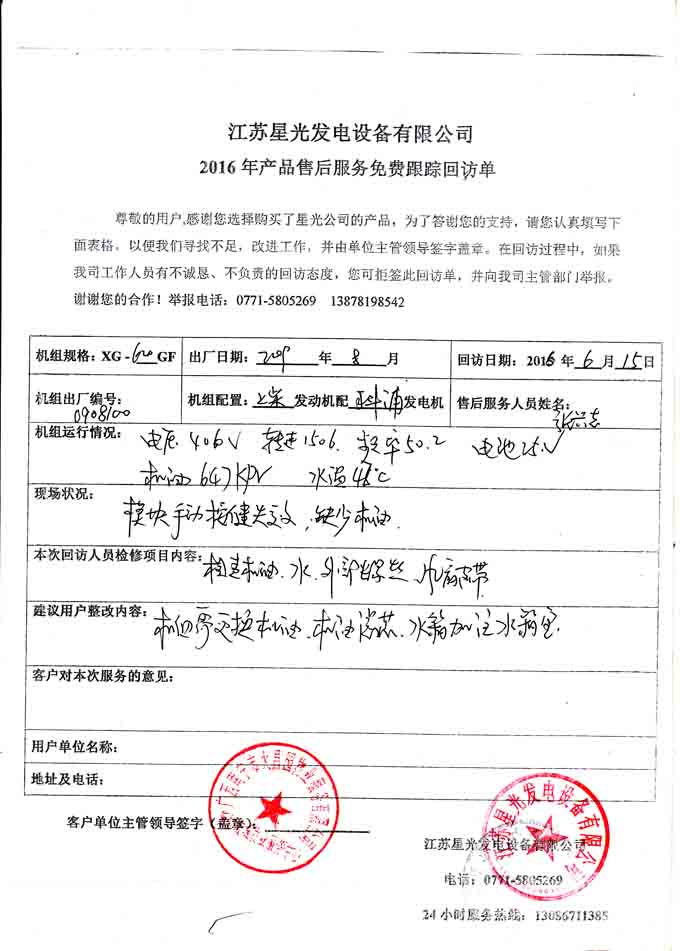 江苏星光发电设备有限公司
2016 年产品售后服务免费跟踪回访单
尊敬的用户,感谢您选择购买了星光公司的产品，为了答谢您的支持，请您认真填写下
面表格，以便我们寻找不足，改进工作，并由单位主管领导签字盖章。在回访过程中，如果
我司工作人员有不诚恳、不负责的回访态度，您可拒签此回访单，并向我司主管部门举报。
谢谢您的合作！举报电话：0771-5805269 13878198542
机组规格：XG -600 GF 出厂日期：2009 年 8 月 回访日期：2016 年 6 月 15日
机组出厂编号： 机组配置：上柴 发动机配 发电机 售后服务人员姓名：
0908100
机组运行情况：电压 406V 转速1506. 频率50.2 电池25V
机油 647KPV 水温48℃
现场状况：
模块手动按健失效，缺少机油.
本次回访人员检修项目内容：检查机油.水.外部螺丝 风扇皮带
建议用户整改内容：机组需更换机油、机油滤芯.水箱加注水箱宝.
客户对本次服务的意见：
用户单位名称：
地址及电话：
客户单位主管领导签字（盖章）：
江苏星光发电设备有限公司
江苏星光发电设备有限公司
电话：0771-5805269
24 小时服务热线：13086711385